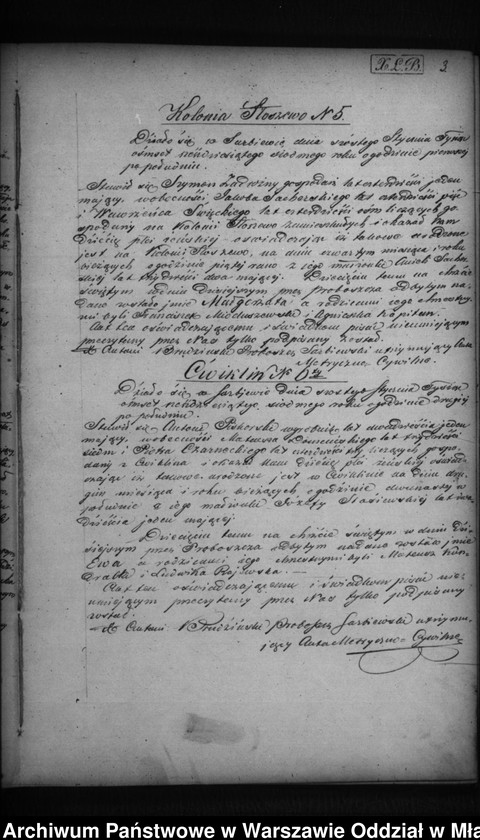 X.L.B. 3
Kolonia Stoszewo N 5.
Działo się w Sarbiewie dnia szóstego Stycznia Tysiąc
ośmset pięćdziesiątego siódmego roku o godzinie pierwszej
po południu.
Stawił się Szymon Zadrożny gospodarz lat czterdzieści jeden
mający, w obecności Jakóba Sachorskiego lat czterdzieści pięć
i Wawrzeńca Święckiego lat czterdzieści ośm liczących go
spodarzy na Kolonii Stoszewo zamieszkałych i okazał Nam
Dziécię płci żeńskiej oświadczając iż takowe urodzone
jest na Kolonii Stoszewo, na dniu czwartym miesiąca i roku
bieżących o godzinie piątej rano z jego małżonki Anieli
lat trzydzieści dwa mającej. Dziecięciu temu na chrzcie
świętym w dniu dzisiejszym przez Proboszcza odbytym na
dano zostało imie Małgorzata a rodzicami jego chrzestny
mi byli Franciszek i Agnieszka
Akt ten oświadczającemu i świadkom pisać nieumiejącym
przeczytany przez Nas tylko podpisany został.
X Antoni Proboszcz Sarbiewski utrzymujący Akta
Metryczno Cywilne.
Cwiklin N 6
Działo się w Sarbiewie dnia szóstego Stycznia Tysiąc
ośmset pięćdziesiątego siódmego roku o godzinie drugiej
po południu.
Stawił się Antoni Piskorski wyrobnik lat dwadzieścia jeden
mający, w obecności Mateusza lat trzydzieści
siedm i Piotra Czarneckiego lat liczących gospo
darzy z Cwiklina i okazał Nam dziécię płci żeńskiej oświad
czając iż takowe urodzone jest w Cwiklinie na dniu dru
gim miesiąca i roku bieżących o godzinie dwunastej w
południe z jego małżonki Józefy Stasiewskiej lat dwa
dzieścia jeden mającej.
Dziecięciu temu na chrzcie świętym w dniu dzi
siejszym przez Proboszcza odbytym nadano zostało imie
Ewa a rodzicami jego chrzestnymi byli Mateusz
i Ludwika
Akt ten oświadczającemu i świadkom pisać nie
umiejącym przeczytany przez Nas tylko podpisany
został.
X Antoni Proboszcz Sarbiewski utrzymu
jący Akta Metryczno Cywilne
Archiwum Państwowe w Warszawie Oddział w Mła